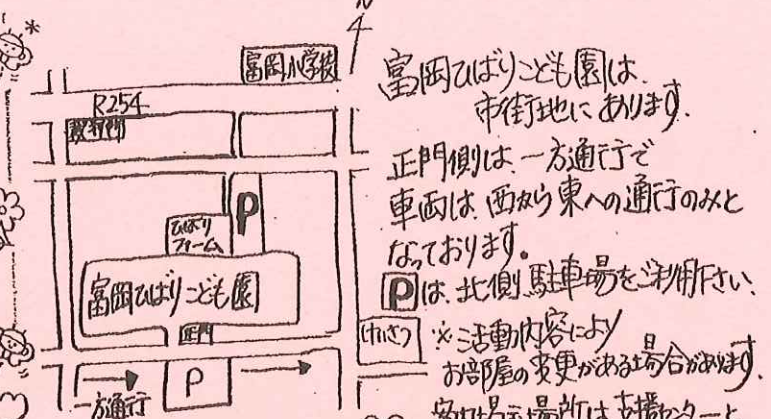 N
富岡小学校
R254
ひばり
ファーム
P
富岡ひばりこども園
正門
けいさつ
P
一方通行
富岡ひばりこども園は、
市街地にあります。
正門側は、一方通行で
車両は、西から東への通行のみと
なっております。
Pは、北側駐車場をご利用下さい。
※活動内容により
お部屋の変更がある場合があります。